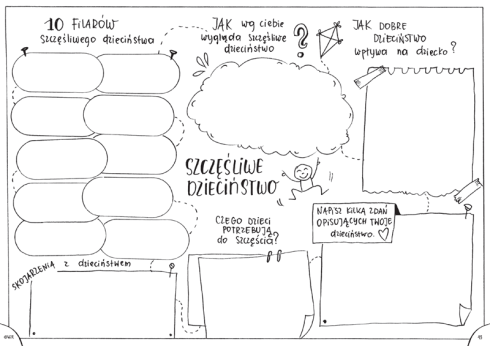 10 FILARÓW
szczęśliwego dzieciństwa
JAK wg ciebie
wygląda szczęśliwe
dzieciństwo
?
JAK DOBRE
DZIECIŃSTWO
wpływa na dziecko?
SZCZĘŚLIWE
DZIECIŃSTWO
CZEGO DZIECI
POTRZEBUJĄ
do SZCZĘŚCIA?
NAPISZ KILKA ZDAŃ
OPISUJĄCYCH TWOJE
dzieciństwo.
SKOJARZENIA z dzieciństwem